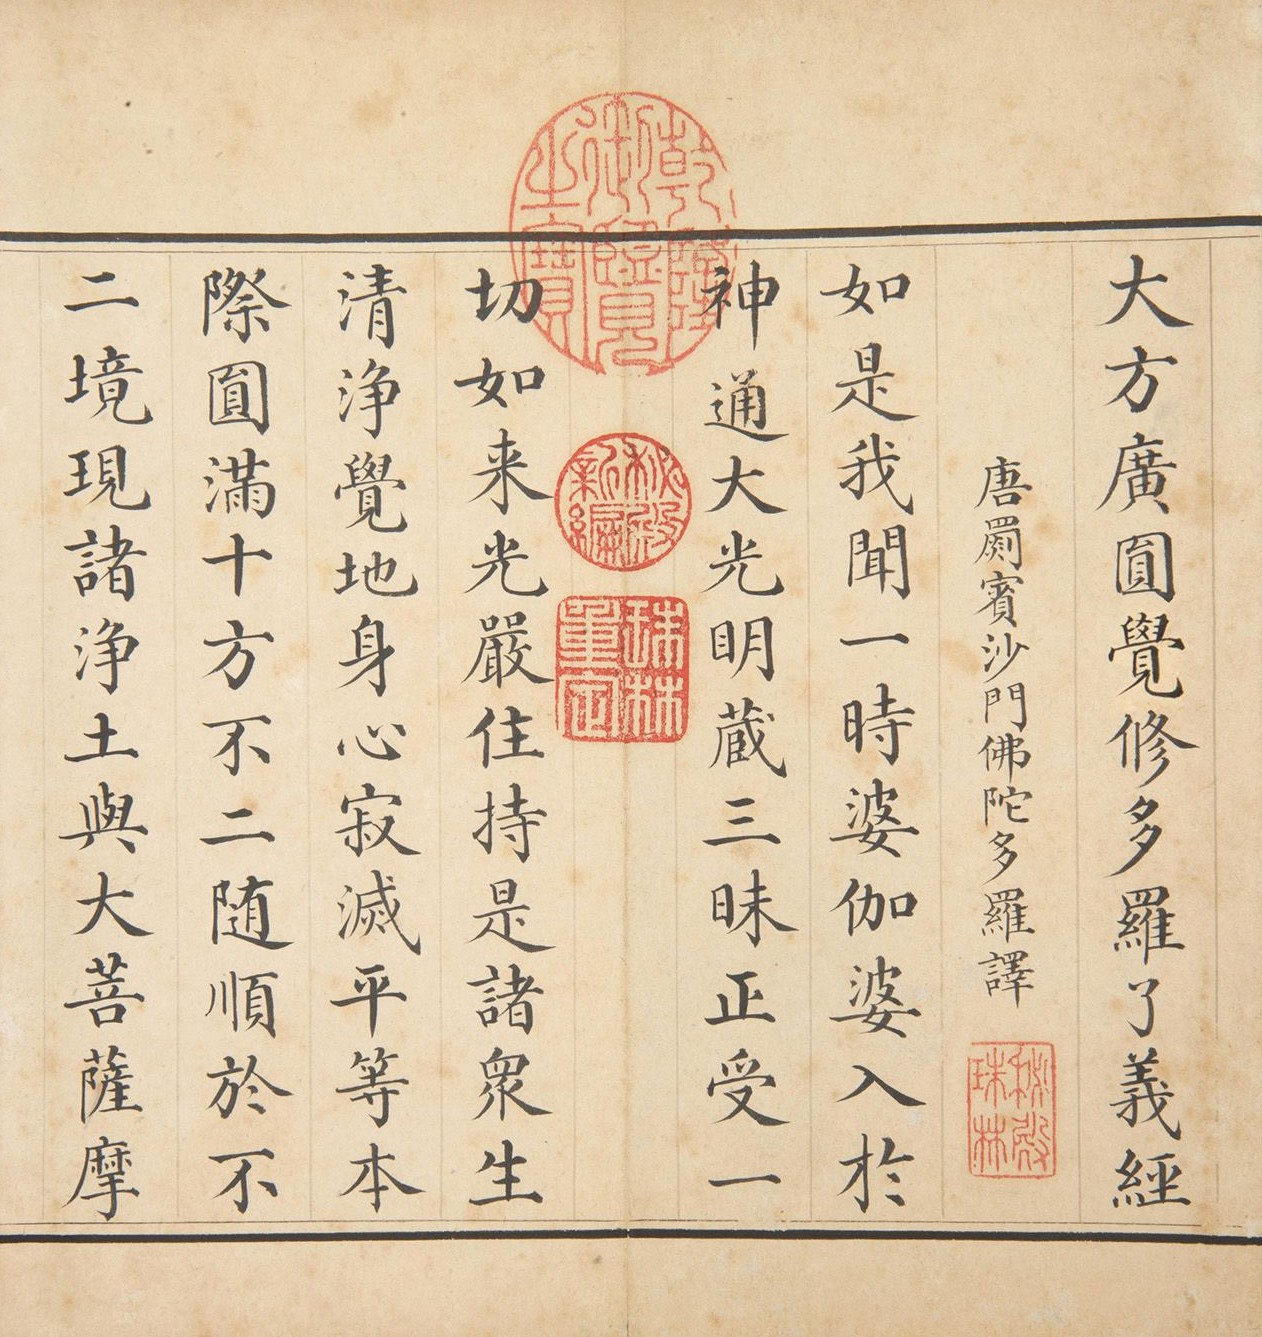 大方廣圎覺修多羅了義經
唐罽賓沙門佛陀多羅譯
如是我聞一時婆伽婆入於
神通大光明蔵三昧正受一
切如来光嚴住持是諸衆生
清浄覺地身心寂滅平等本
際圎滿十方不二随順於不
二境現諸浄土與大菩薩摩
乾隆御覽之寶
秘殿新編
珠林重定
秘殿珠林